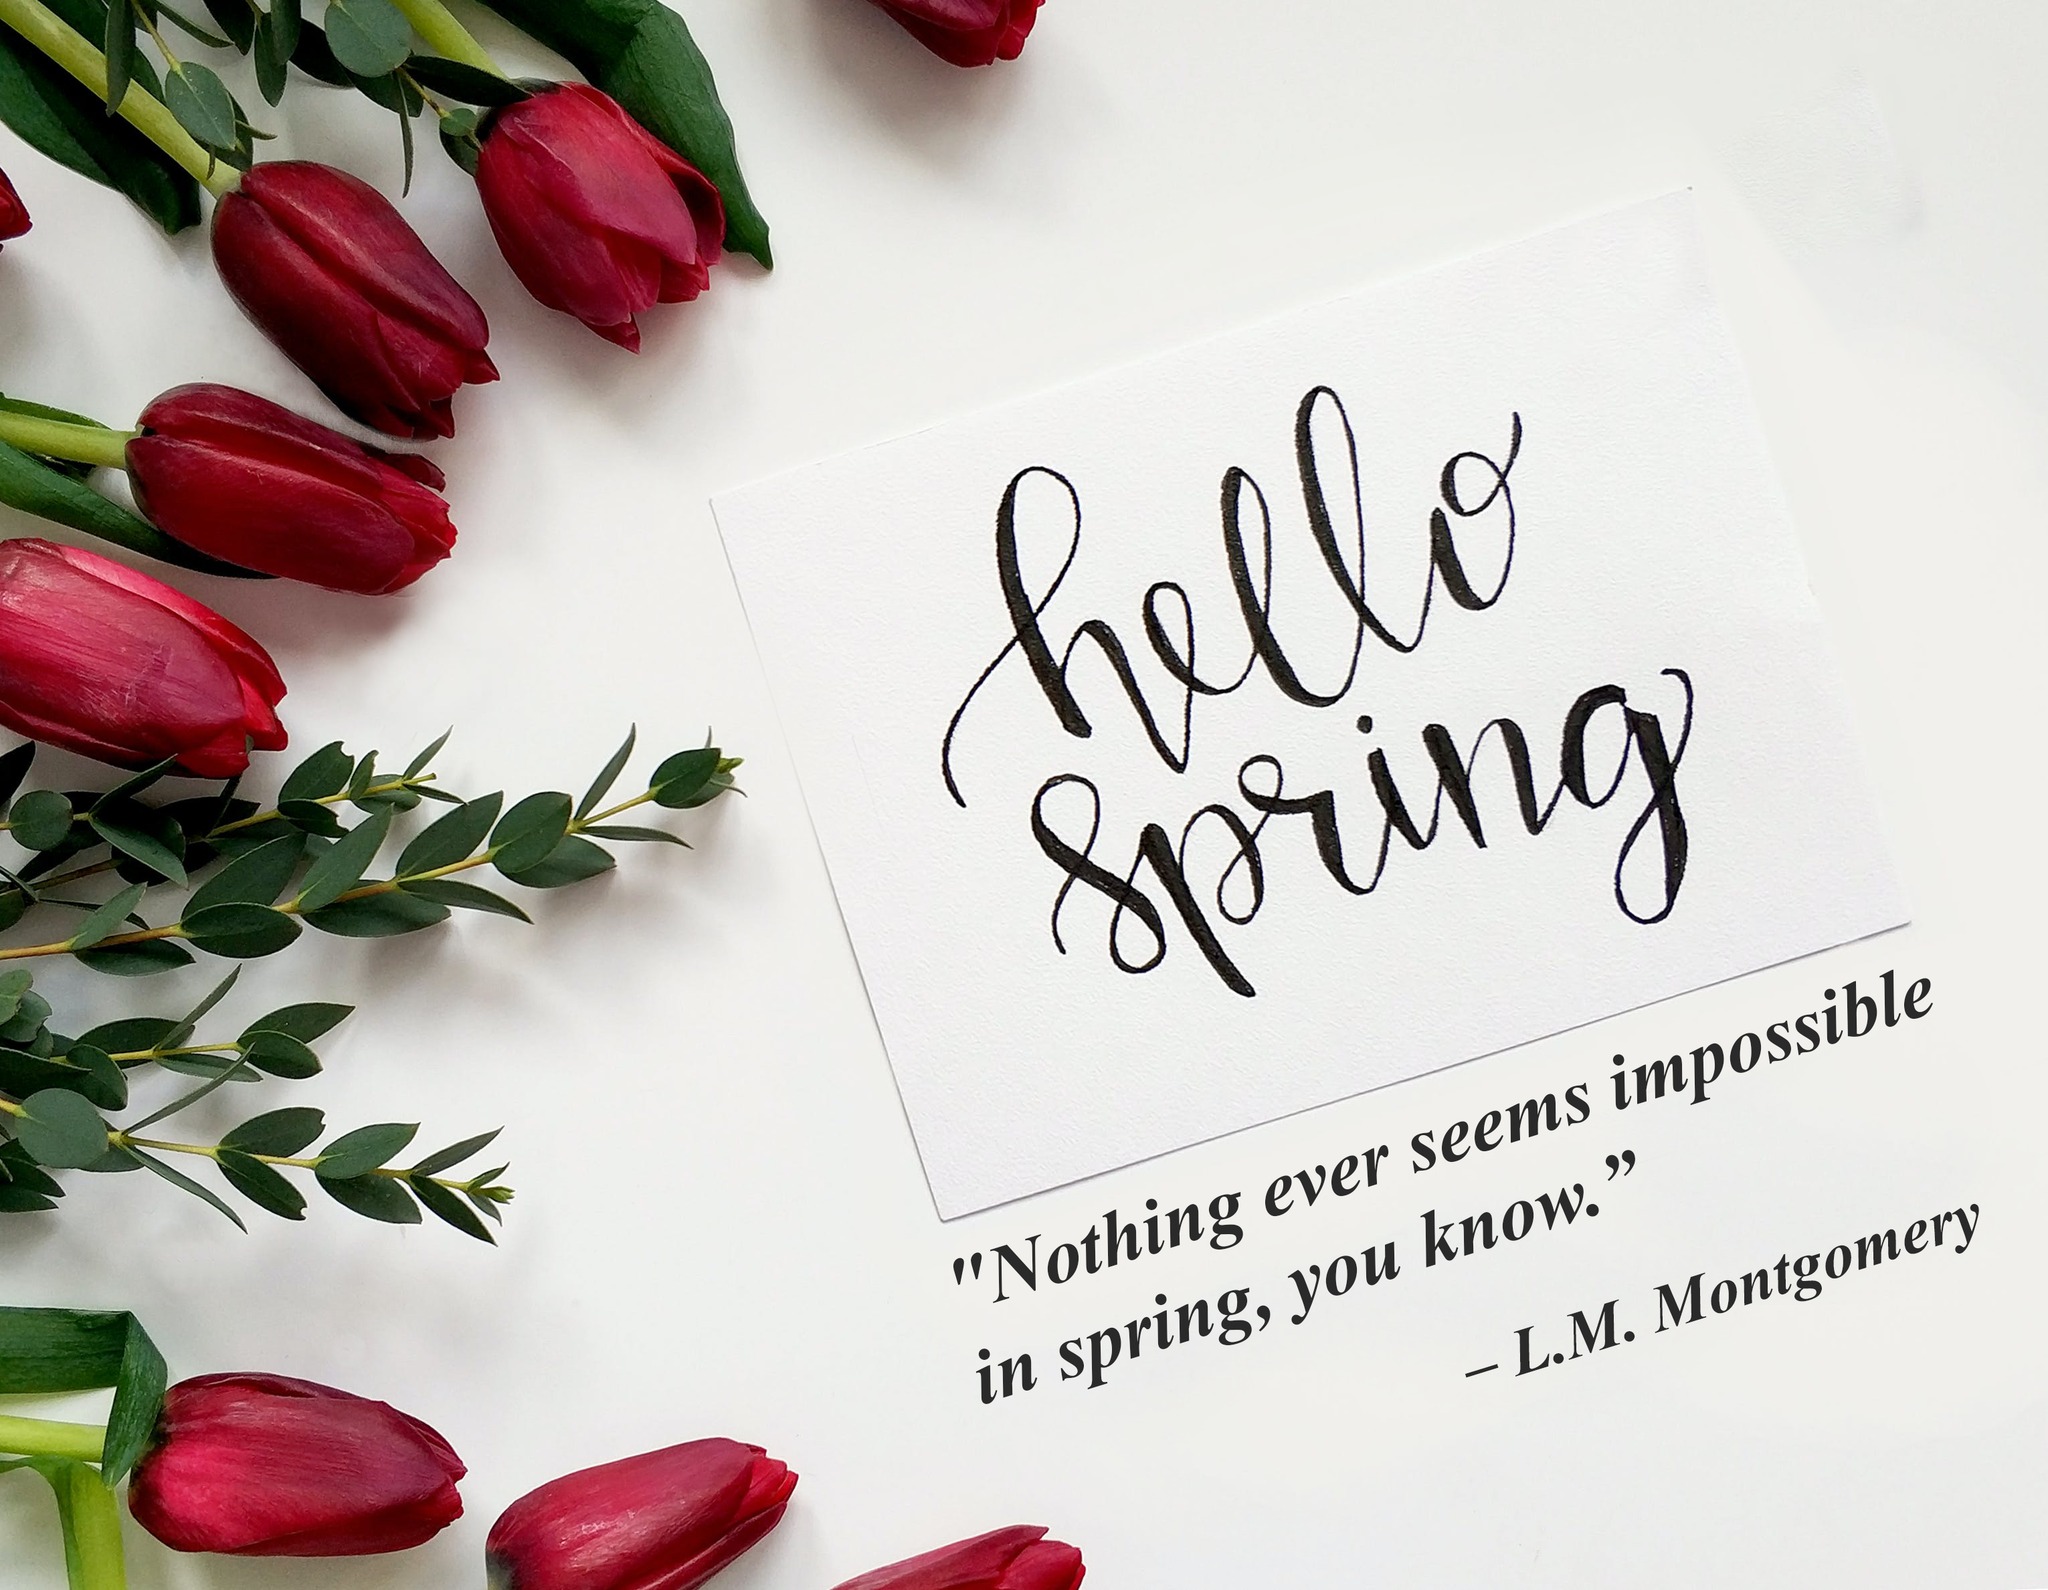 hello
spring
"Nothing ever seems impossible
in spring, you know.”
– L.M. Montgomery